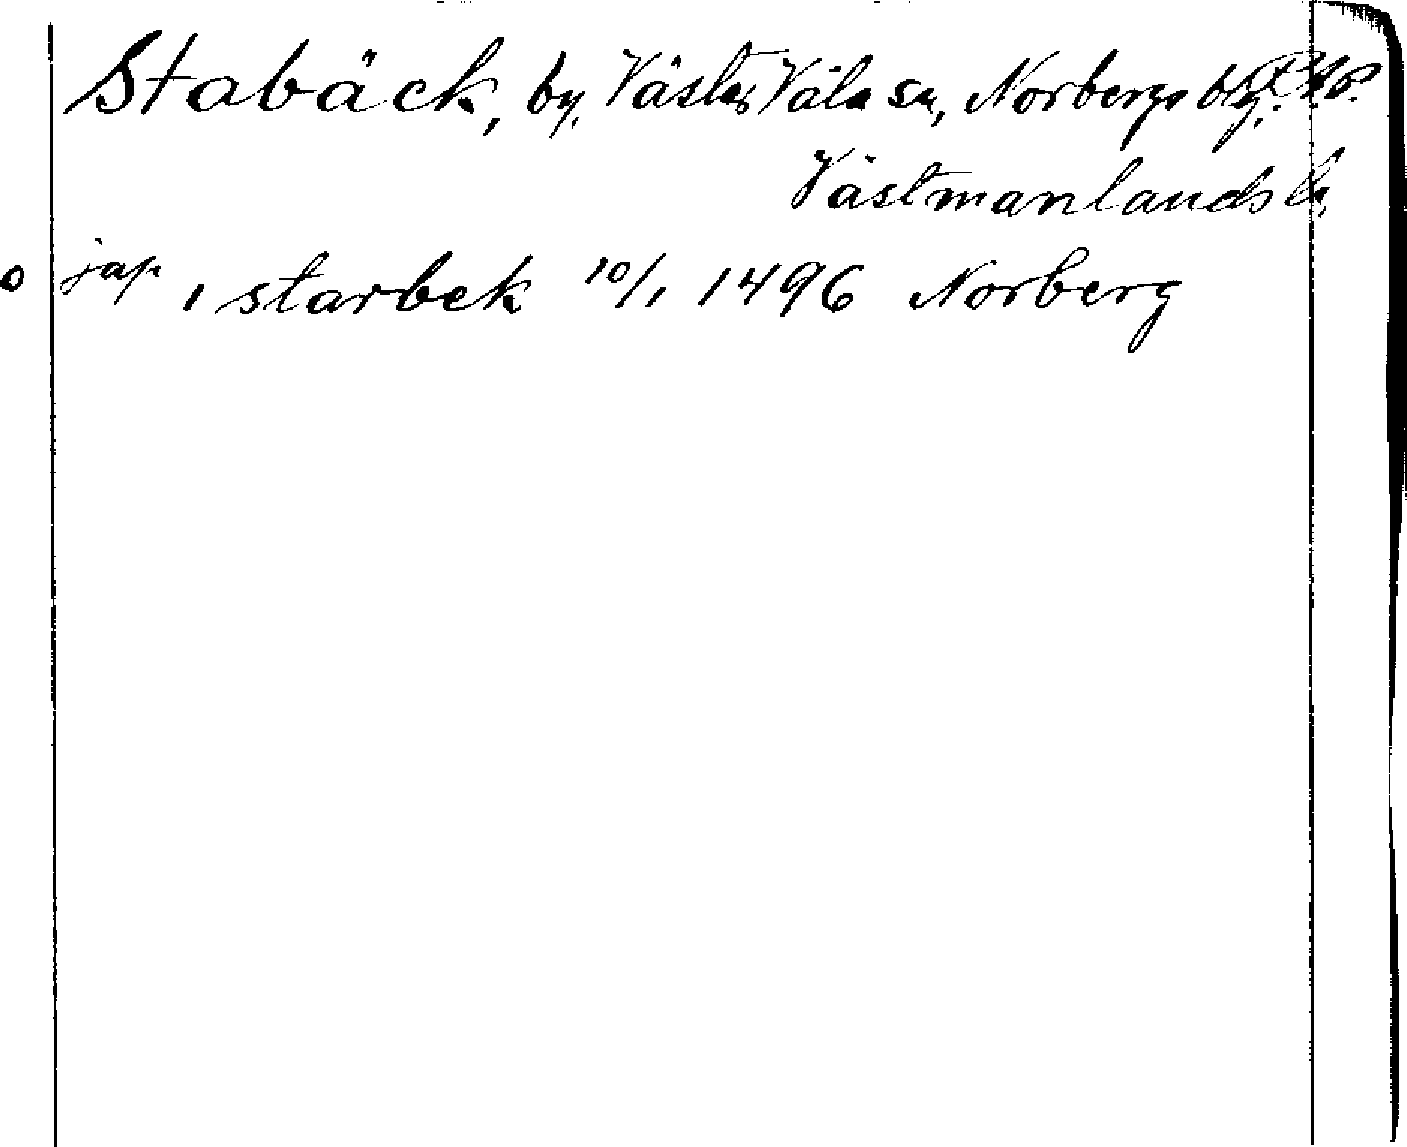 Stabäck, by, Västra Våla sn, Norbergs bg,
Västmanlands l.
o jap i starbek 10/1 1496 Norberg